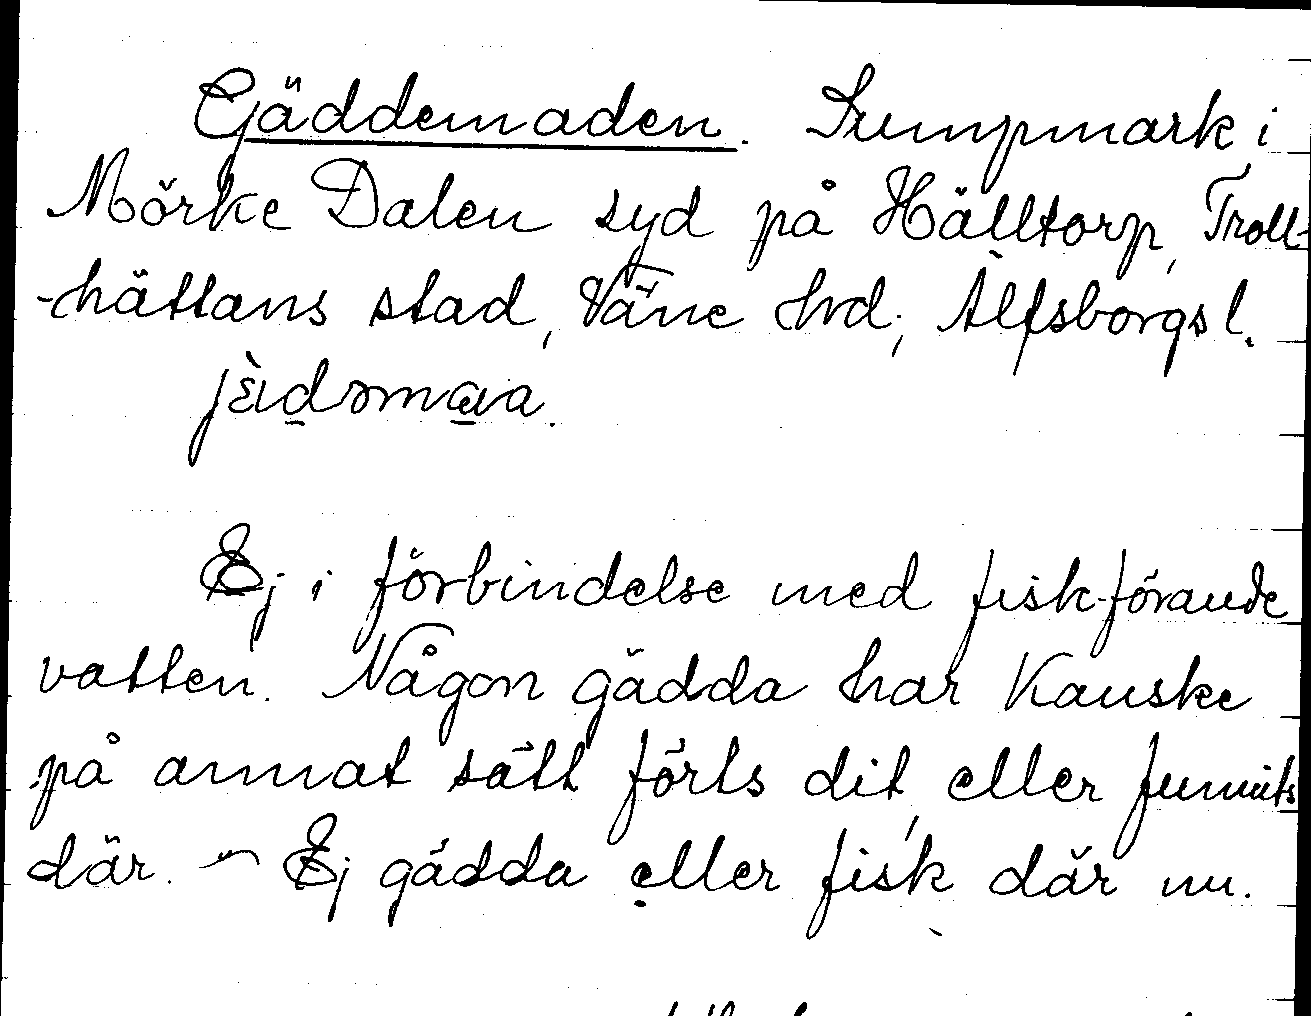 Gäddemaden. Sumpmark i
Mörke Dalen syd på Hälltorp, Troll-
-hättans stad, Väne hrd, Älfsborgs l.
jèdəmaa.
Ej i förbindelse med fisk-förande
vatten. Någon gädda har kanske
på annat sätt förts dit eller funnits
där. – Ej gädda eller fisk där nu.